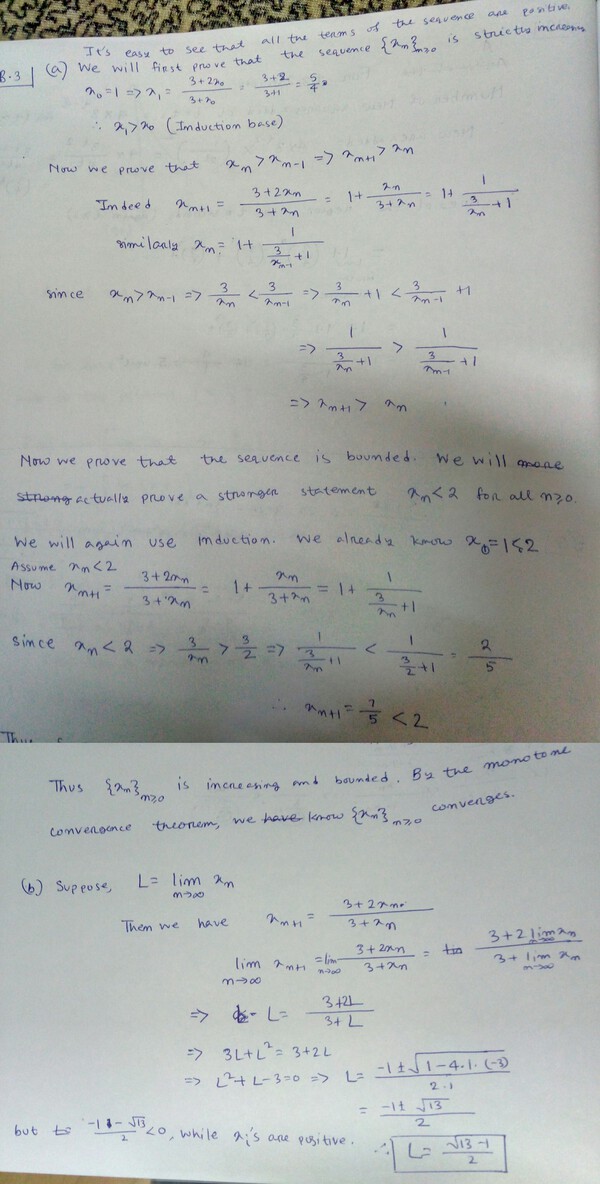 It's easy to see that all the terms of the sequence are positive.
B.3 (a) We will first prove that the sequence {x_n}_{n≥0} is strictly increasing
x_0 = 1 => x_1 = (3+2x_0)/(3+x_0) = (3+2)/(3+1) = 5/4
∴ x_1 > x_0 (Induction base)
Now we prove that x_n > x_{n-1} => x_{n+1} > x_n
Indeed x_{n+1} = (3+2x_n)/(3+x_n) = 1 + x_n/(3+x_n) = 1 + 1/(3/x_n + 1)
similarly x_n = 1 + 1/(3/x_{n-1} + 1)
since x_n > x_{n-1} => 3/x_n < 3/x_{n-1} => 3/x_n + 1 < 3/x_{n-1} + 1
=> 1/(3/x_n + 1) > 1/(3/x_{n-1} + 1)
=> x_{n+1} > x_n
Now we prove that the sequence is bounded. We will more
strong actually prove a stronger statement x_n < 2 for all n≥0.
We will again use induction. We already know x_0 = 1 ≤ 2
Assume x_n < 2
Now x_{n+1} = (3+2x_n)/(3+x_n) = 1 + x_n/(3+x_n) = 1 + 1/(3/x_n + 1)
since x_n < 2 => 3/x_n > 3/2 => 1/(3/x_n + 1) < 1/(3/2 + 1) = 2/5
∴ x_{n+1} = 7/5 < 2
Thus {x_n}_{n≥0} is increasing and bounded. By the monotone
convergence theorem, we have know {x_n}_{n≥0} converges.
(b) Suppose, L = lim_{n→∞} x_n
Then we have x_{n+1} = (3+2x_n)/(3+x_n)
lim_{n→∞} x_{n+1} = lim_{n→∞} (3+2x_n)/(3+x_n) = (3+2 lim_{n→∞} x_n)/(3+ lim_{n→∞} x_n)
=> L = (3+2L)/(3+L)
=> 3L+L² = 3+2L
=> L²+L-3=0 => L = (-1 ± √(1-4.1.(-3)))/(2.1)
= (-1 ± √13)/2
but (-1-√13)/2 < 0, while x_i's are positive. ∴ L = (√13 - 1)/2